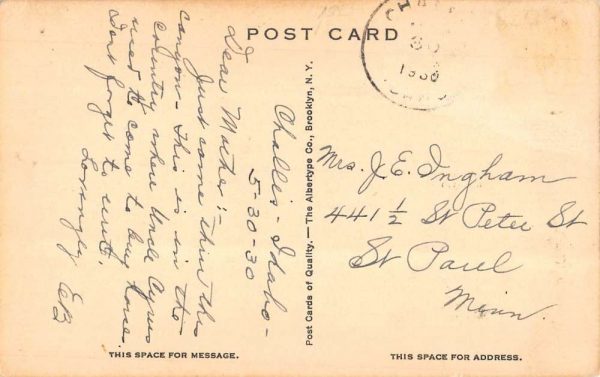 POST CARD
CHALLIS
30
1930
IDAHO
Challis - Idaho -
5-30-30
Dear Mother: -
Just came thru this
canyon - this is in the
country where Uncle Cyrus
used to come to buy horses.
Dont forget to write.
Lovingly EB
Post Cards of Quality. — The Albertype Co., Brooklyn, N. Y.
Mrs. J. E. Ingham
441 ½ St Peter St
St Paul
Minn.
THIS SPACE FOR MESSAGE.
THIS SPACE FOR ADDRESS.